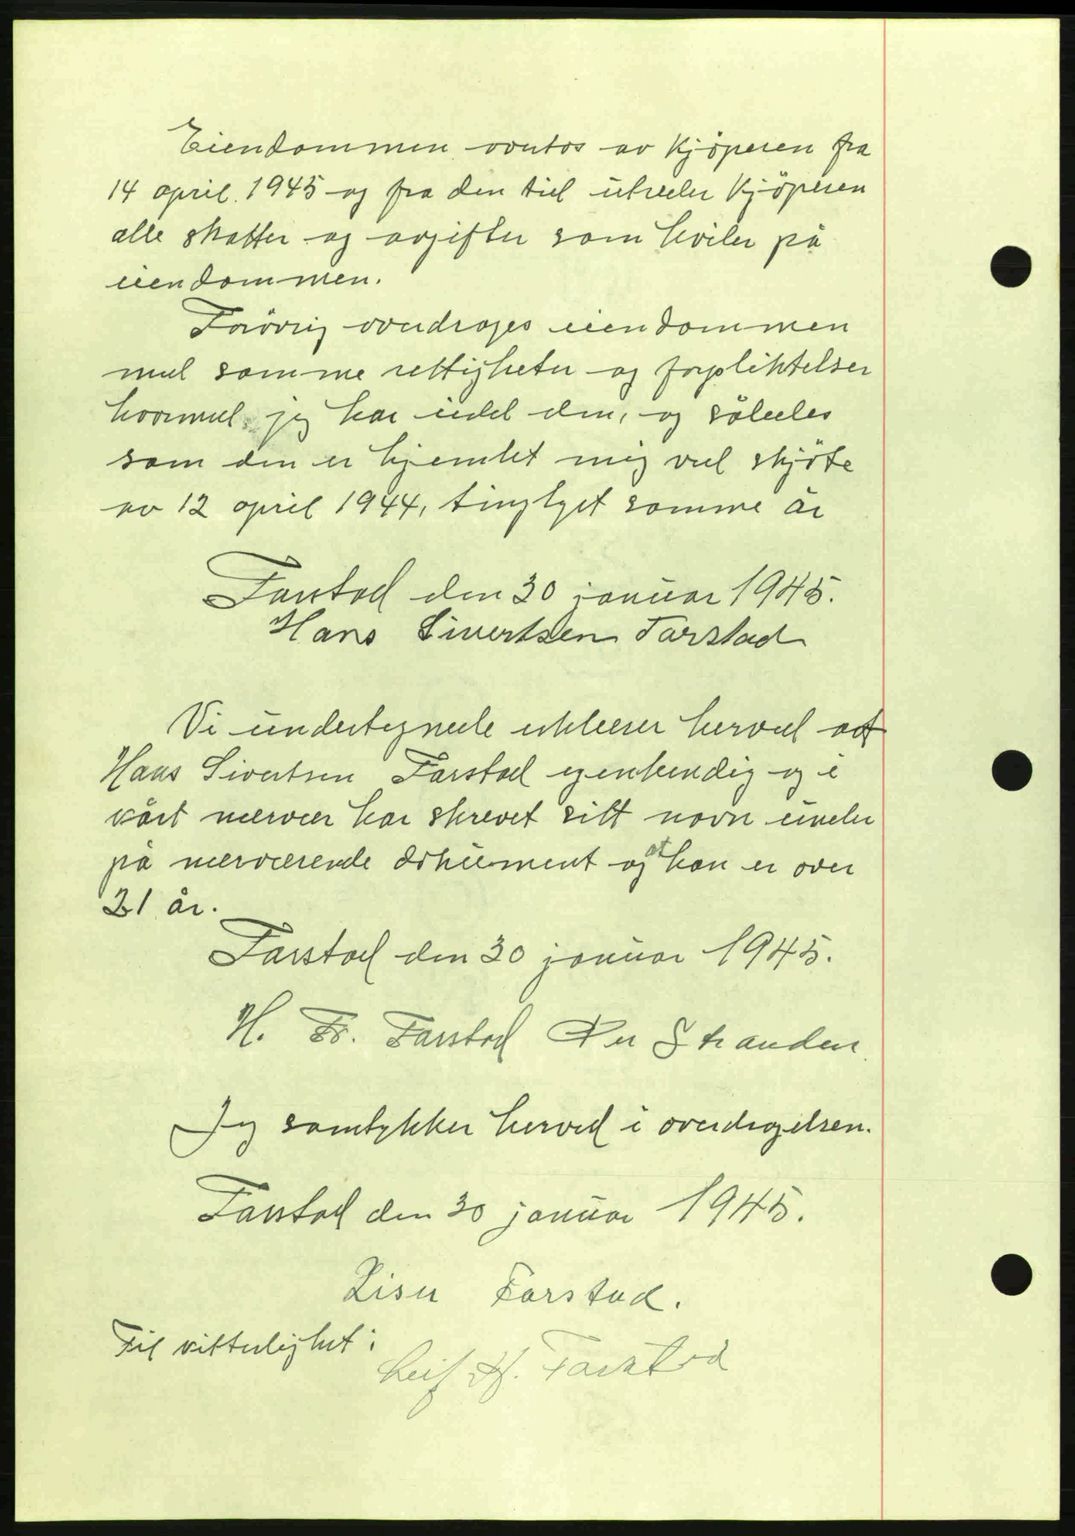 Eiendommen overtas av kjøperen fra
14 april 1945 og fra den tid utreder kjøperen
alle skatter og avgifter som hviler på
eiendommen.
Forøvrig overdrages eiendommen
med samme rettigheter og forpliktelser
hvormed jeg har eiet den, og således
som den er hjemlet mig ved skjøte
av 12 april 1944, tinglyst samme år
Farstad den 30 januar 1945.
Hans Sivertsen Farstad
Vi undertegnede erklærer herved at
Hans Sivertsen Farstad egenhendig og i
vårt nærvær har skrevet sitt navn under
på nærværende dokument og at han er over
21 år.
Farstad den 30 januar 1945.
H. Fr. Farstad Per Stranden
Jeg samtykker herved i overdragelsen.
Farstad den 30 januar 1945.
Lise Farstad.
Til vitterlighet:
Leif H. Farstad